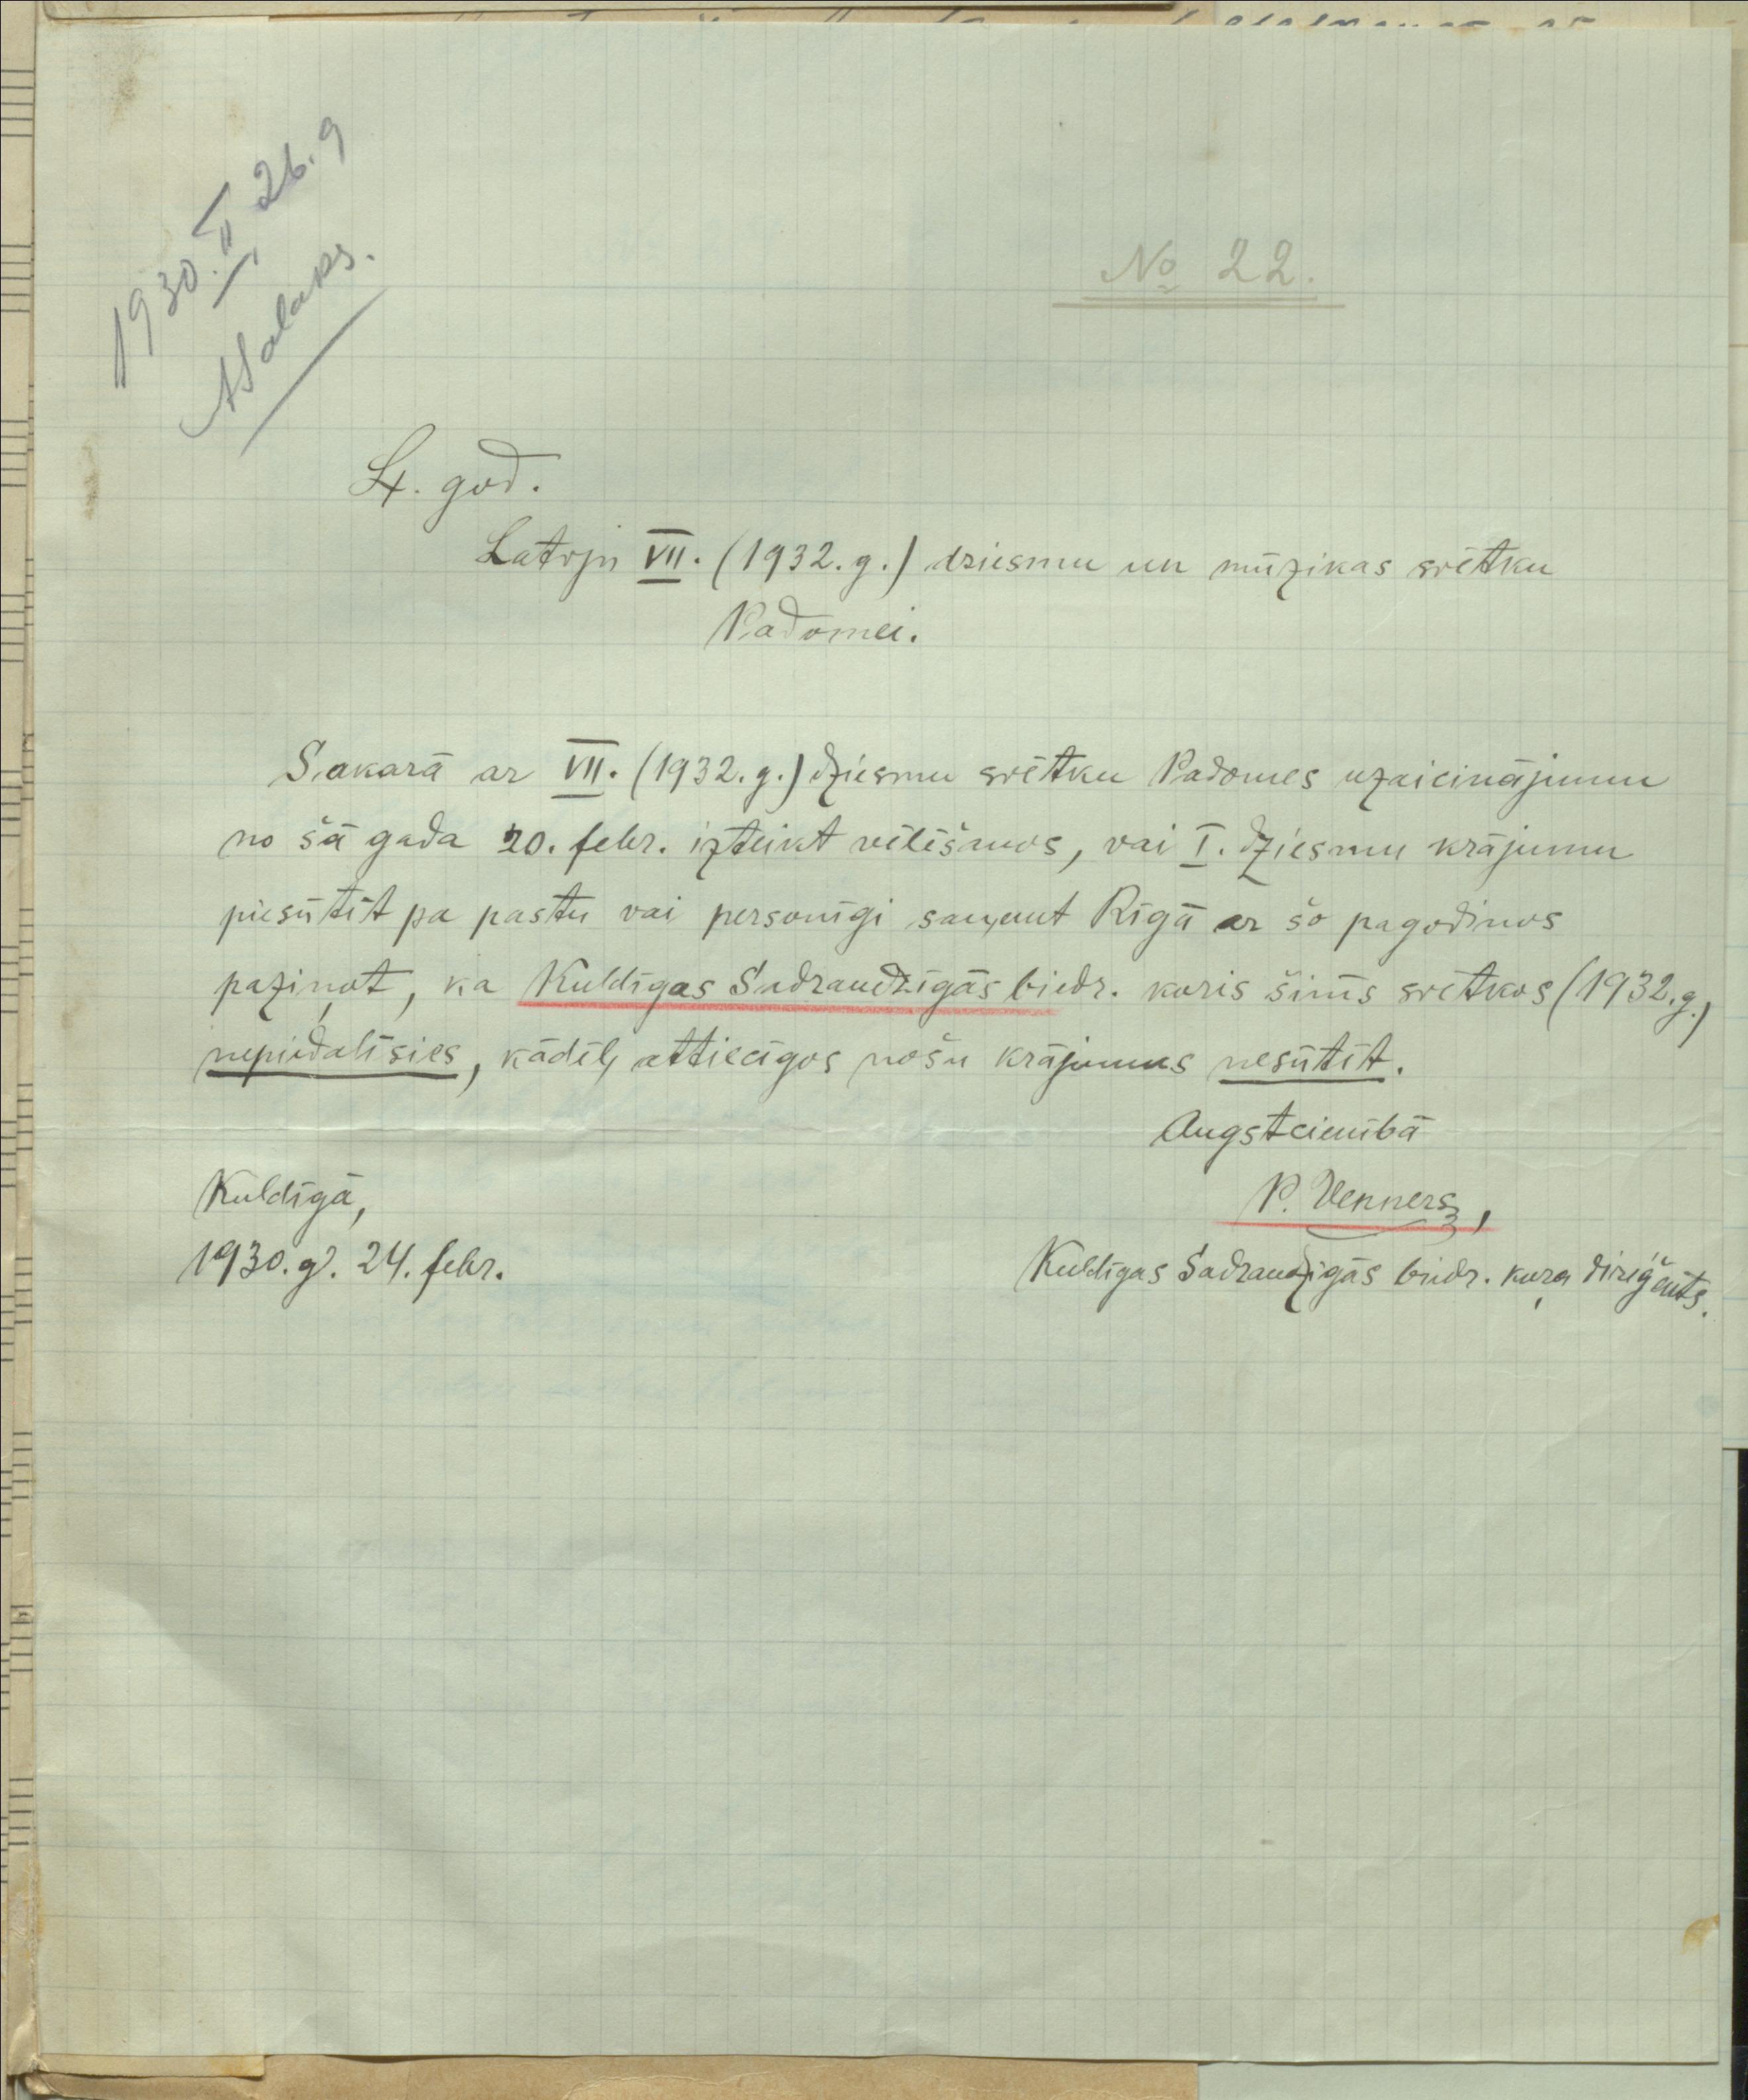 1930.II 26. g
ASalaks.
No 22.
Lt. god.
Latvju VII. (1932. g.) dziesmu un mūzikas svētku
Padomei.
Sakarā ar VII. (1932. g.) dziesmu svētku Padomes uzaicinājumu
no šā gada 20. febr. izteikt vēlēšanos, vai I. dziesmu krājumu
piesūtīt pa pastu vai personīgi saņemt Rīgā ar šo pagodinos
paziņot, ka Kuldīgas Sadraudzīgās biedr. koris šinīs svētkos (1932. g.)
nepiedalīsies, kādēļ attiecīgos nošu krājumus nesūtīt.
Augstcienībā
P. Venners,
Kuldīgas Sadraudzīgās biedr. kora diriģents.
Kuldīgā,
1930. g. 24. febr.